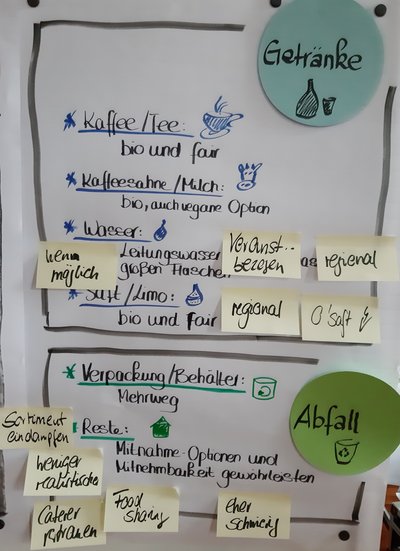 Getränke
Kaffee/Tee:
bio und fair
Kaffeesahne/Milch:
bio, auch vegane Option
Wasser:
Leitungswasser
großen Flaschen
wenn
möglich
Veranst.-
bezogen
as
regional
Saft/Limo:
bio und fair
regional
O'Saft
Verpackung/Behälter:
Mehrweg
Abfall
Sortiment
eindampfen
Reste:
Mitnahme-Optionen und
Mitnehmbarkeit gewährleisten
weniger
realistische
Caterer
Food
sharing
eher
schwierig